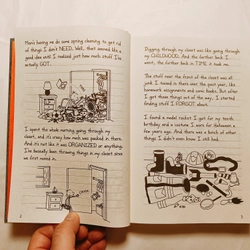 Mom's having me do some spring cleaning to get rid
of things I don't NEED. Well, that seemed like a
good idea until I realized just how much stuff I've
actually GOT.
I spent the whole morning going through my
closet, and it's crazy how much was packed in there.
And it's not like it was ORGANIZED or anything.
I've basically been throwing things in my closet since
we first moved in.
Digging through my closet was like going through
my CHILDHOOD. And the farther back I
went, the farther back in TIME it took me.
The stuff near the front of the closet was
junk I tossed in there over the past year, like
homework assignments and comic books. But after
I got those things out of the way, I started
finding stuff I FORGOT about.
I found a model rocket I got for my tenth
birthday and a costume I wore for Halloween a
few years ago. And there was a bunch of other
things I didn't even know I still had.